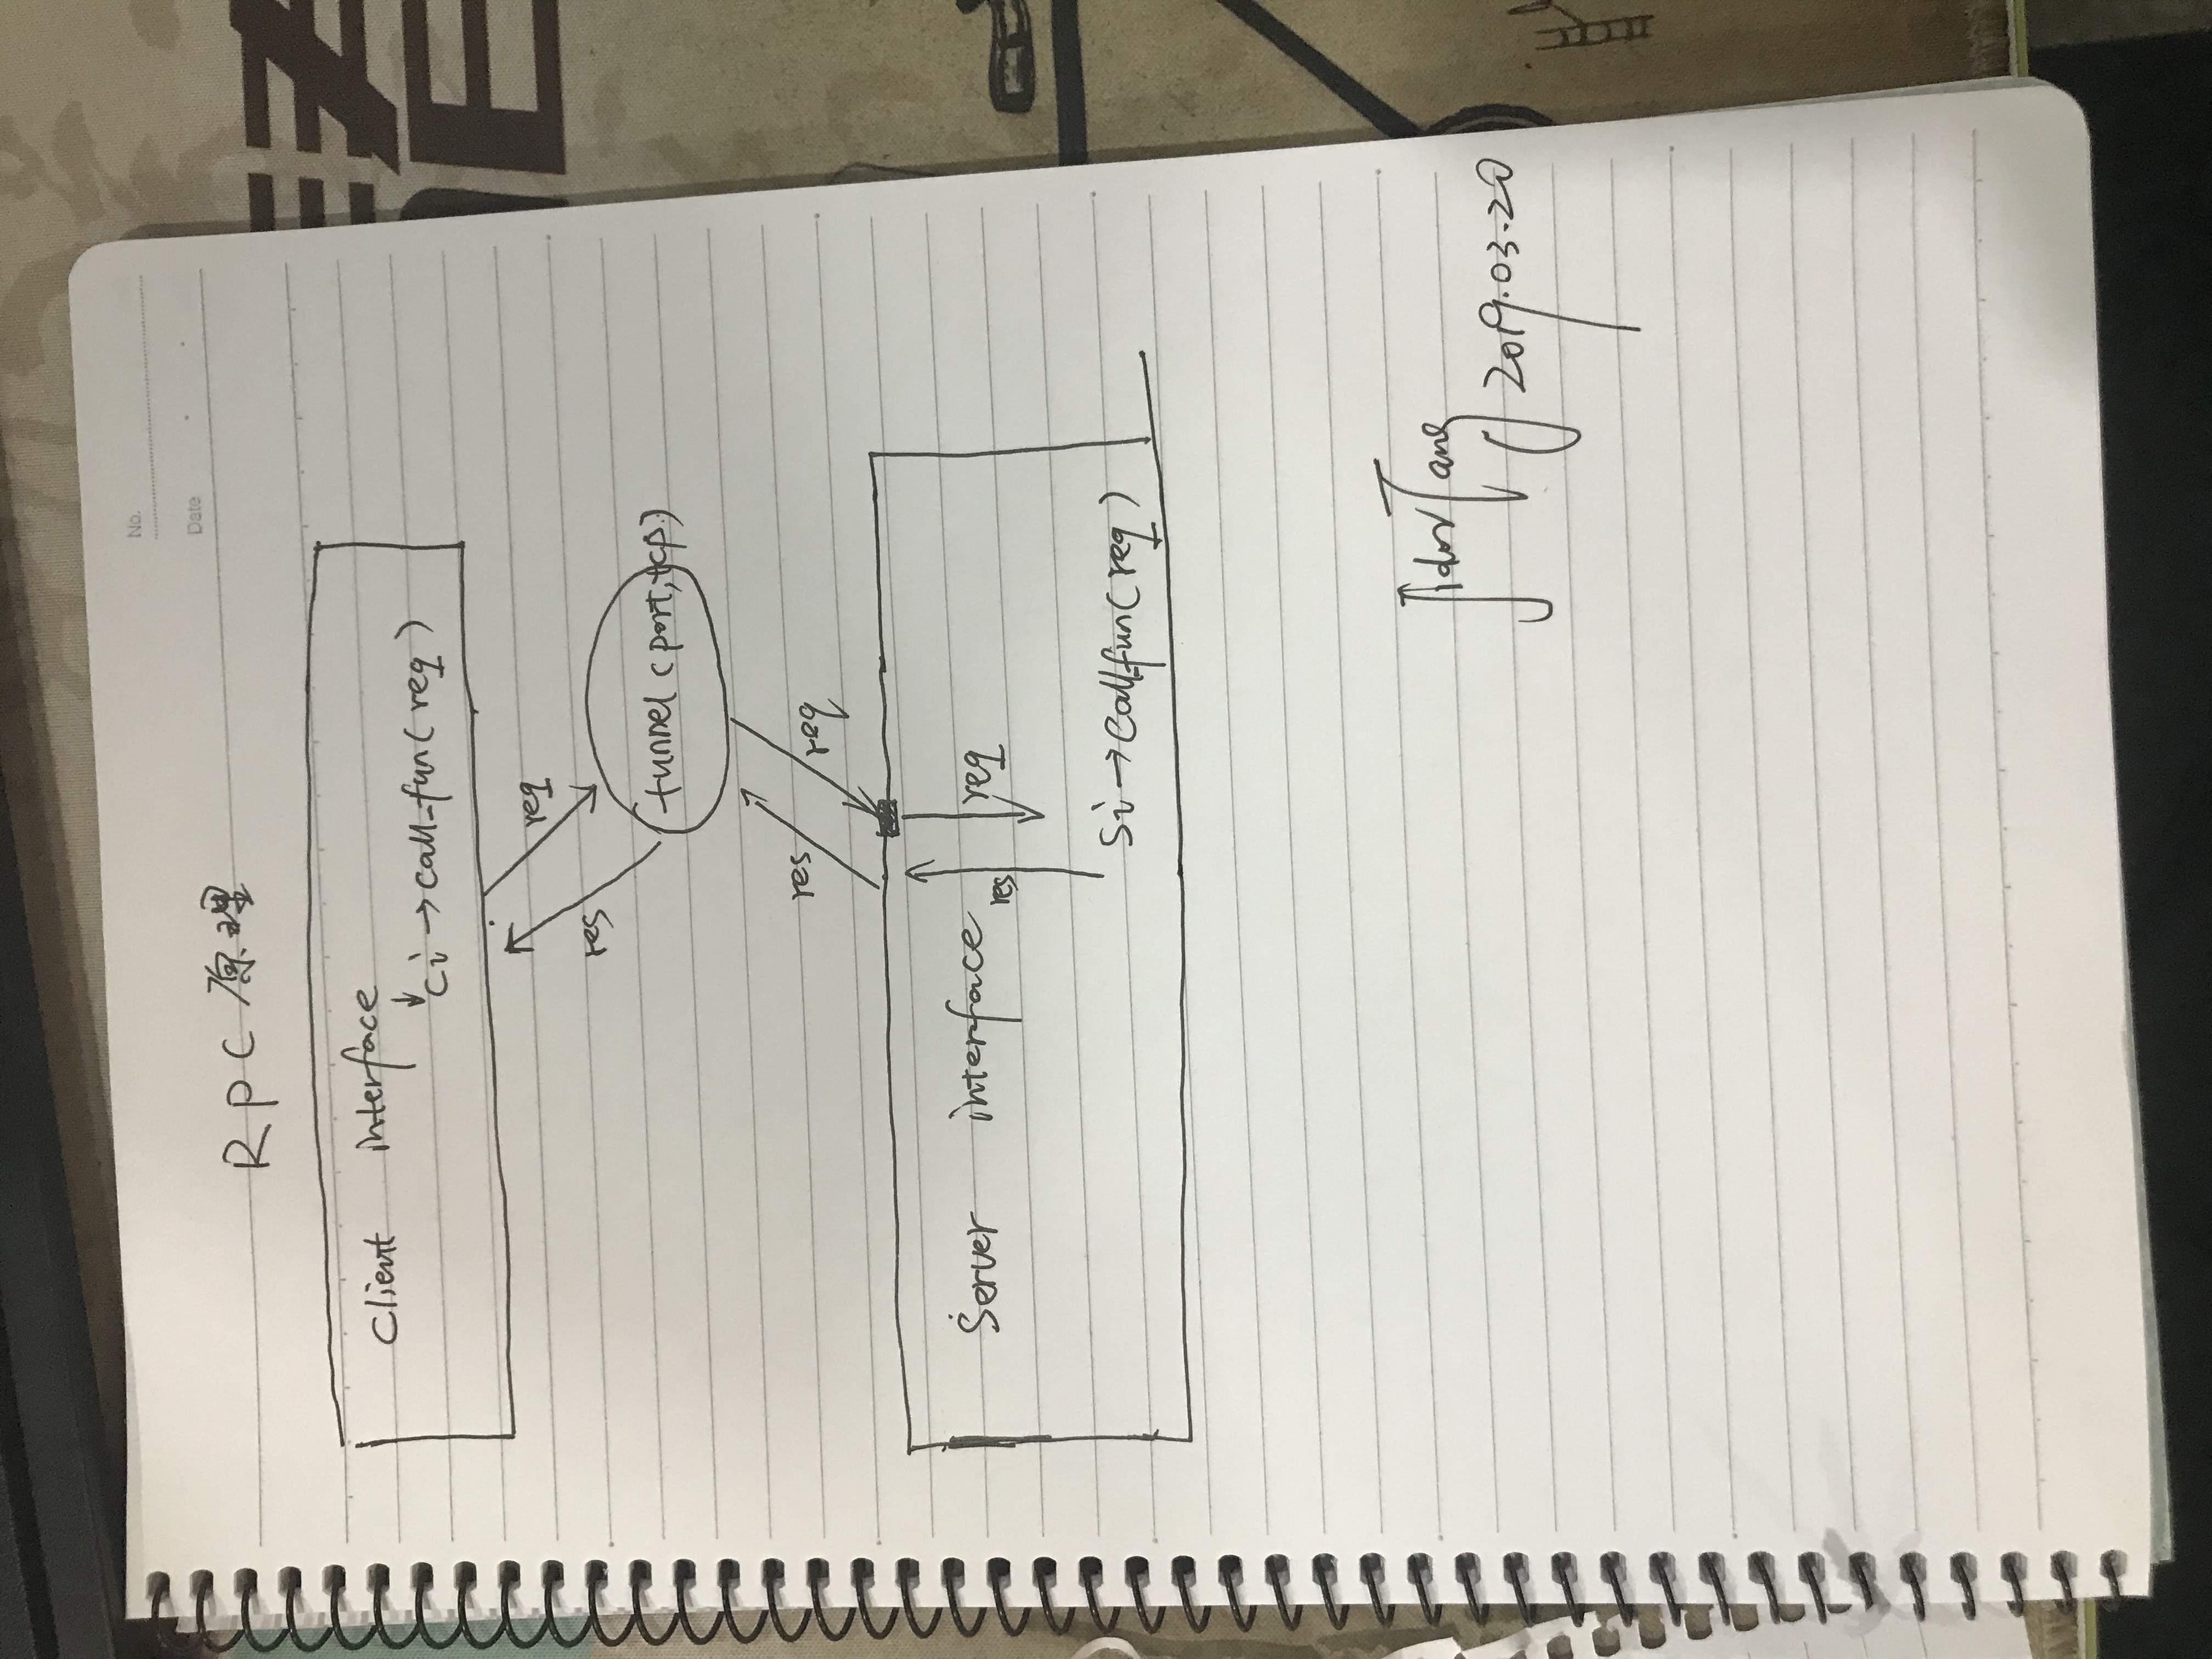 No.
Date
RPC 原理
Client interface
ci → call_fun(req)
req
res
tunnel (port, tcp)
res
req
Server interface
res
req
Si → call_fun(req)
Tang
2019.03.20